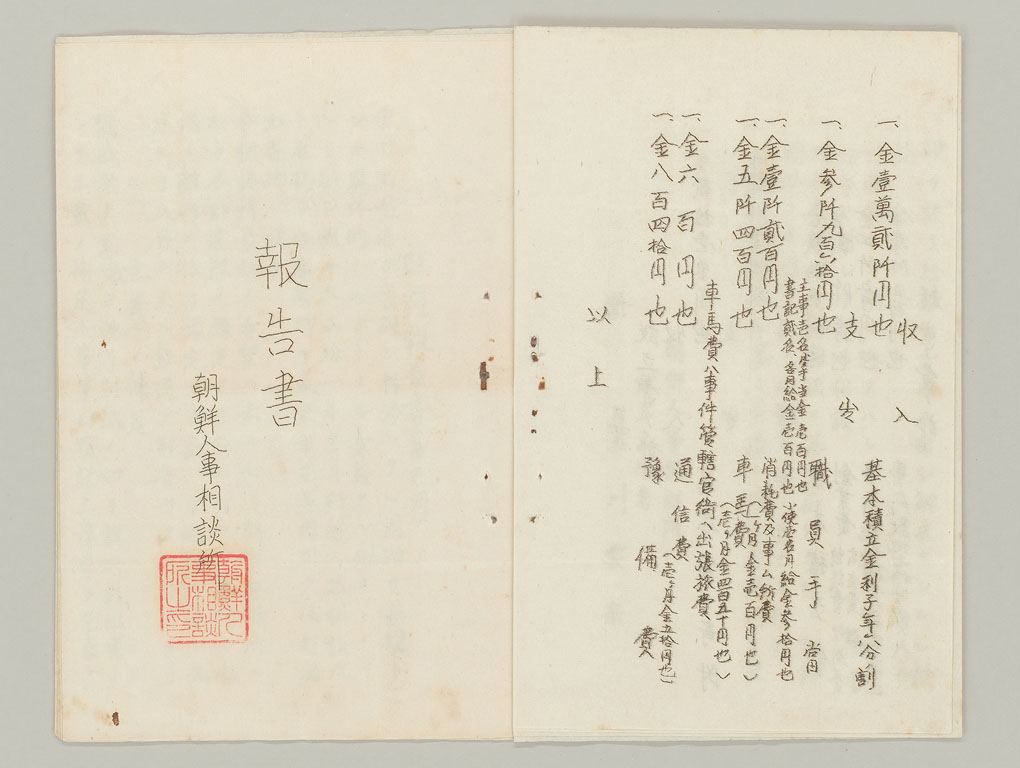 収入
一、金壹萬貳阡円也 基本積立金利子年八分割
支出
一、金参阡九百六拾円也 職員手当
主事壱名 手当金壱百円也
書記貳名、各月給金壱百円也 小使壱名月給金参拾円也
一、金壹阡貳百円也 消耗費及事ム所費
(一ヶ月金壱百円也)
一、金五阡四百円也 車馬費
(壱ヶ月金四百五十円也)
車馬費ハ事件管轄官衙ヘ出張旅費
一、金六百円也 通信費
(壱ヶ月金五拾円也)
一、金八百四拾円也 豫備費
以上
報告書
朝鮮人事相談